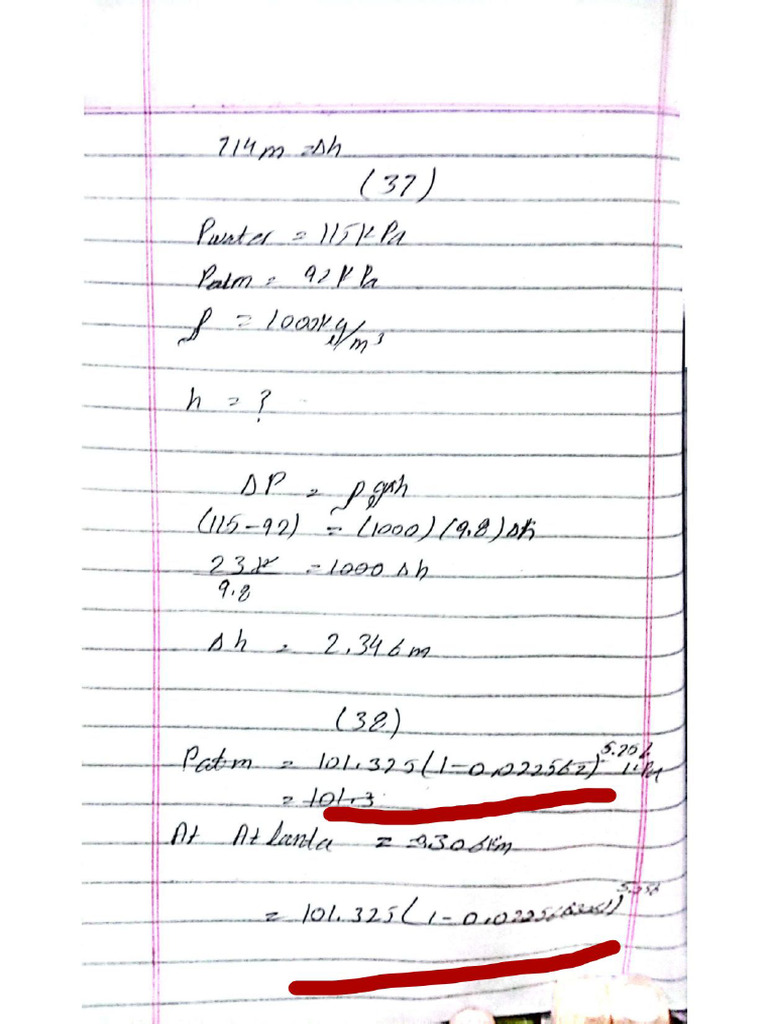 214m = Δh
(37)
Pwater = 115kPa
Patm = 92kPa
ρ = 1000kg/m³
h = ?
ΔP = ρgΔh
(115-92) = (1000)(9.8)Δh
23k/9.8 = 1000Δh
Δh = 2.346m
(38)
Patm = 101.325(1-0.02256z)^5.256 kPa
= 101.3
At Atlanta = 0.306km
= 101.325(1-0.02256(0.306))^5.256